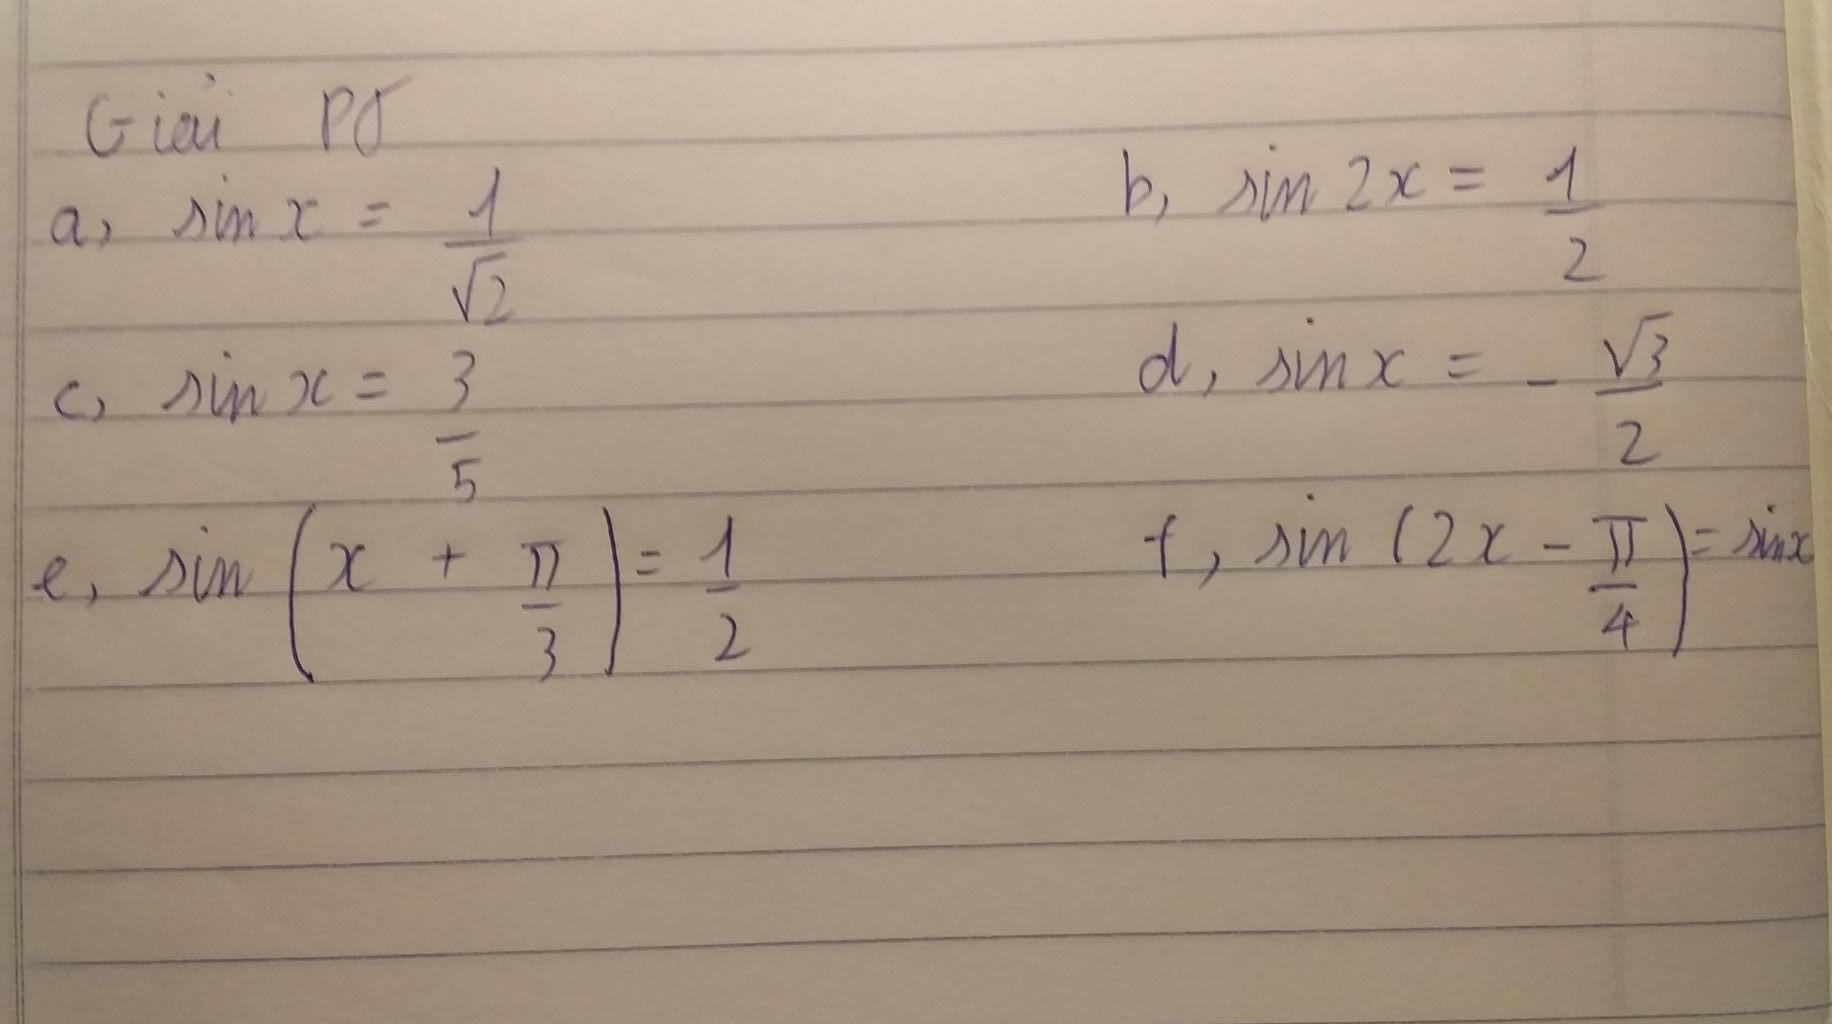 Giải PT
a, sin x = 1/√2 b, sin 2x = 1/2
c, sin x = 3/5 d, sin x = - √3/2
e, sin (x + π/3) = 1/2 f, sin (2x - π/4) = sin x